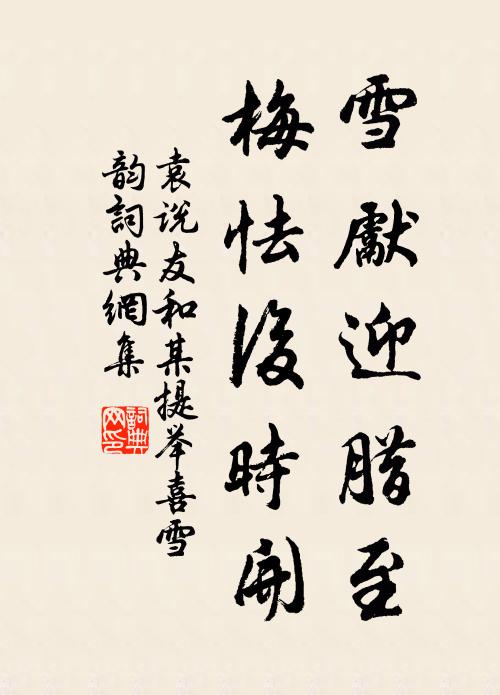 雪獻迎腊至
梅怯後時開
袁说友和某提举喜雪
韵詞典網集
詞典网印